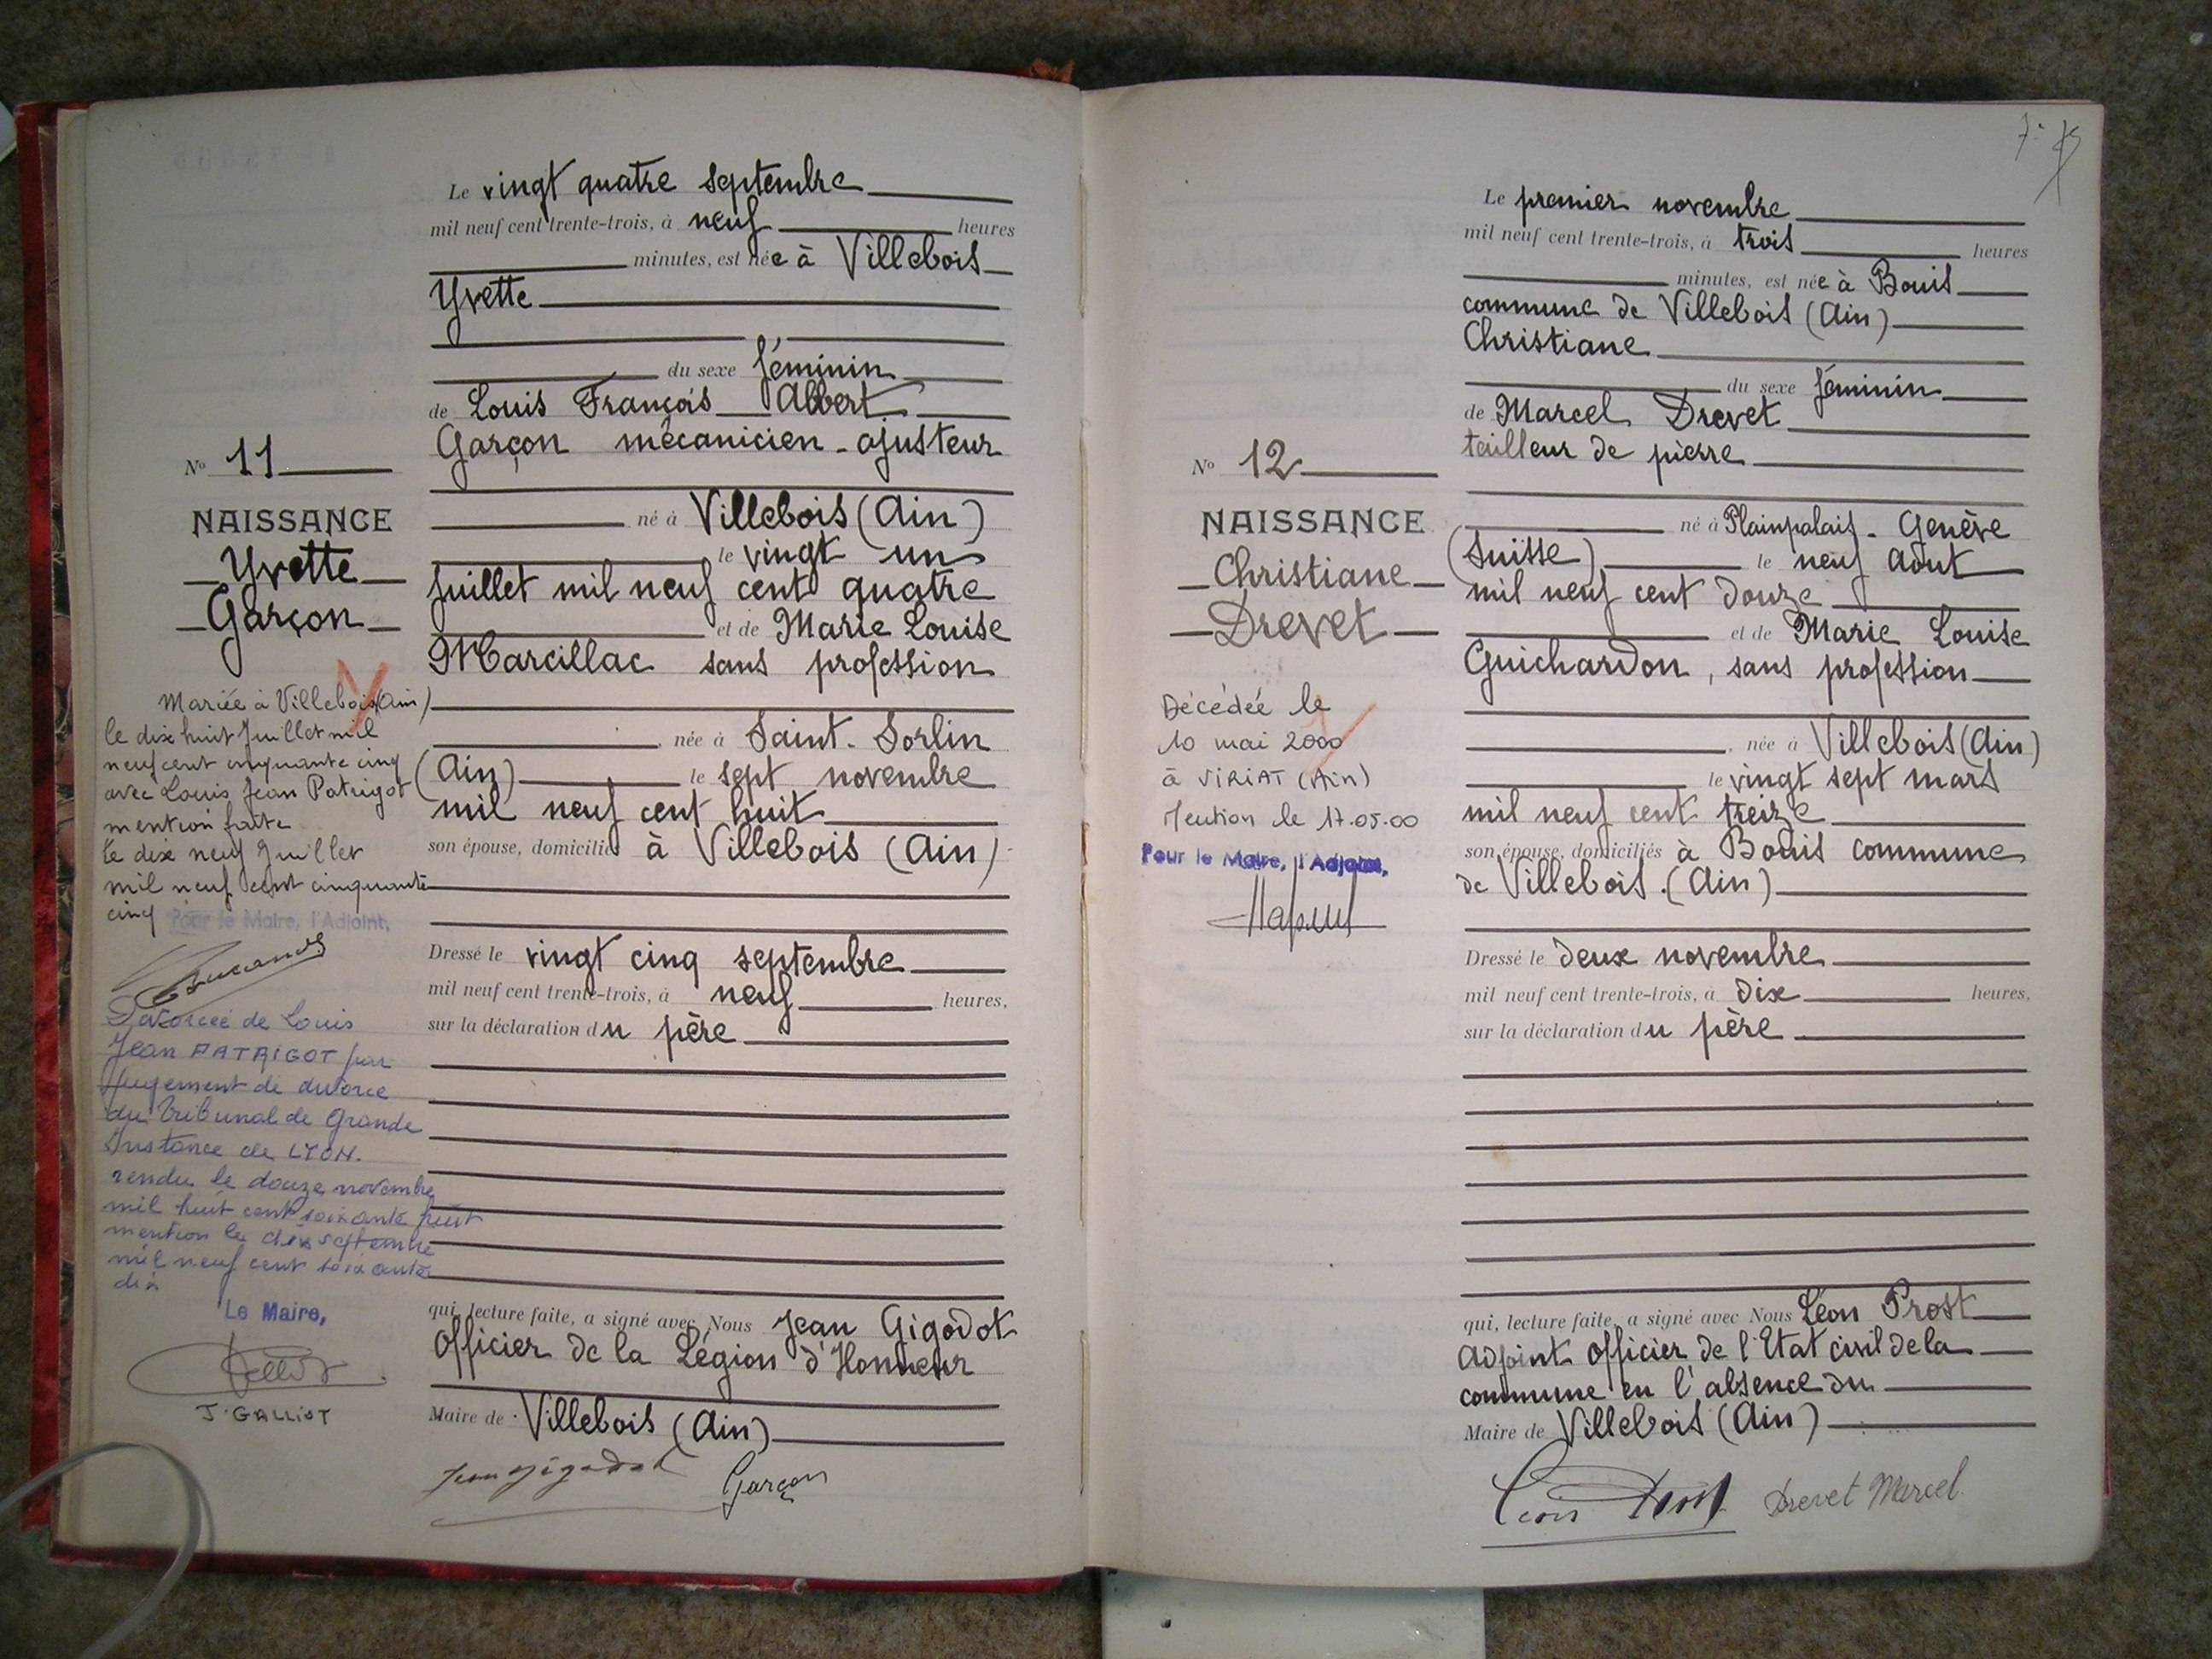 Le vingt quatre septembre
mil neuf cent trente-trois, à neuf heures
minutes, est née à Villebois
Yvette
du sexe féminin
de Louis François Albert
Garçon mécanicien-ajusteur
né à Villebois (Ain)
le vingt un
Juillet mil neuf cent quatre
et de Marie Louise
Marcillac sans profession
née à Saint-Sorlin
(Ain) le sept novembre
mil neuf cent huit
son épouse, domiciliés à Villebois (Ain)
Dressé le vingt cinq septembre
mil neuf cent trente-trois, à neuf heures,
sur la déclaration du père
qui, lecture faite, a signé avec Nous Jean Gigodot
Officier de la Légion d'Honneur
Maire de Villebois (Ain)
Jean Gigodot Garçon
No 11
NAISSANCE
Yvette
Garçon
Mariée à Villebois (Ain)
le dix huit Juillet mil
neuf cent cinquante cinq
avec Louis Jean Patrigot
mention faite
le dix neuf Juillet
mil neuf cent cinquante
cinq Pour le Maire, l'Adjoint,
Divorcée de Louis
Jean PATRIGOT par
Jugement de divorce
du Tribunal de Grande
Instance de LYON.
rendu le douze novembre
mil huit cent soixante huit
mention le dix septembre
mil neuf cent soixante
dix
Le Maire,
J. GALLIOT
7
Le premier novembre
mil neuf cent trente-trois, à trois heures
minutes, est née à Bouis
commune de Villebois (Ain)
Christiane
du sexe féminin
de Marcel Drevet
tailleur de pierre
né à Plainpalais - Genève
(Suisse) le neuf Août
mil neuf cent douze
et de Marie Louise
Guichardon, sans profession
née à Villebois (Ain)
le vingt sept mars
mil neuf cent treize
son épouse, domiciliés à Bouis commune
de Villebois. (Ain)
Dressé le deux novembre
mil neuf cent trente-trois, à dix heures,
sur la déclaration du père
qui, lecture faite, a signé avec Nous Léon Prost
Adjoint Officier de l'Etat civil de la
commune en l'absence du
Maire de Villebois (Ain)
Léon Prost Drevet Marcel
No 12
NAISSANCE
Christiane
Drevet
Décédée le
10 mai 2000
à VIRIAT (Ain)
Mention le 17.05.00
Pour le Maire, l'Adjoint,